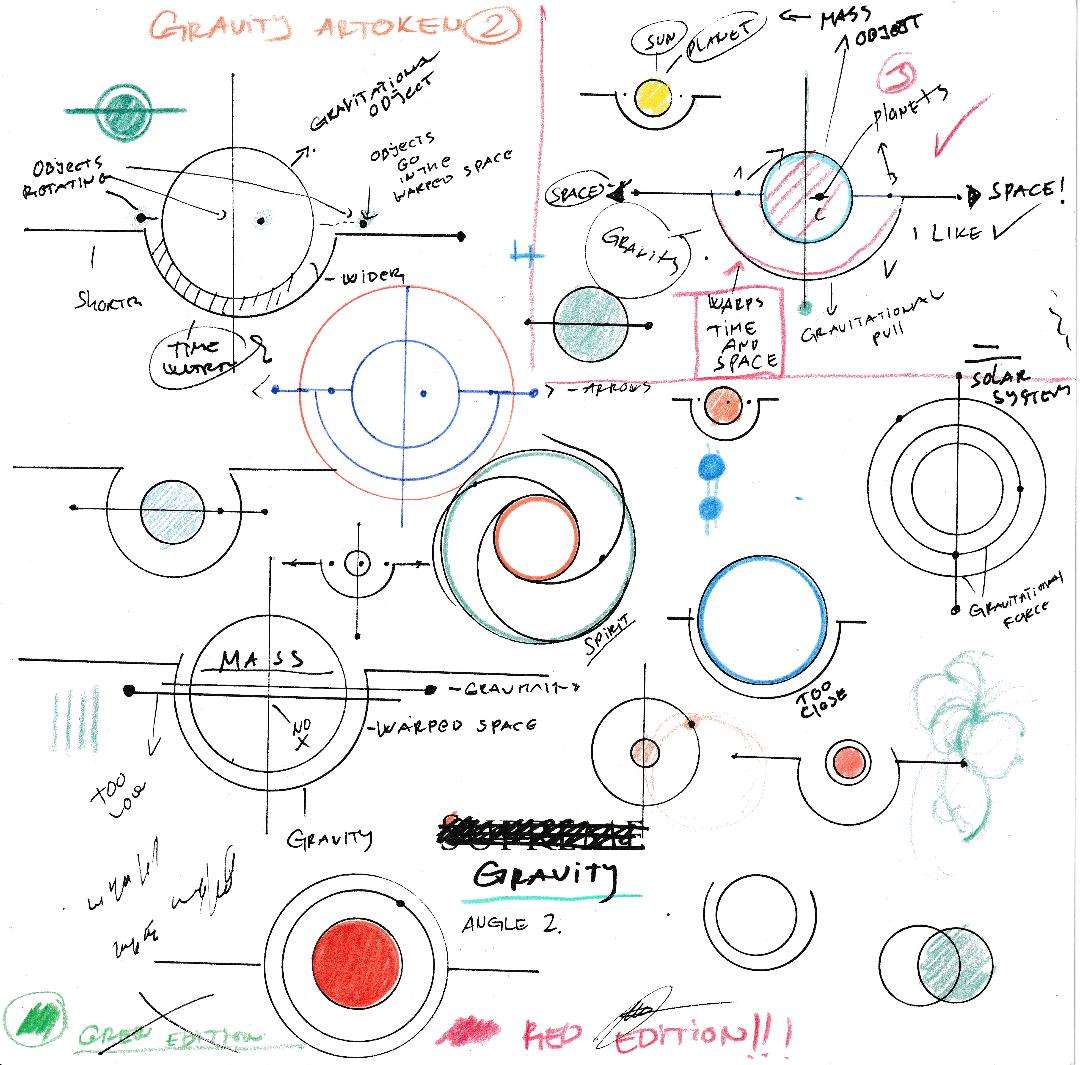 GRAVITY ARTOKEN 2
SUN
PLANET
← MASS
OBJECT
3
GRAVITATIONAL
OBJECT
PLANETS
OBJECTS
ROTATING
OBJECTS
GO
IN THE
WARPED SPACE
SPACE
SPACE!
C
GRAVITY
I LIKE ✓
4
SHORTER
- WIDER
TIME
WARPS
TIME
AND
SPACE
GRAVITATIONAL
PULL
- ARROWS
SOLAR
SYSTEM
SPIRIT
GRAVITATIONAL
FORCE
MASS
NO
X
- WARPED SPACE
TOO
CLOSE
TOO
LOW
GRAVITY
GRAVITY
ANGLE 2.
GREEN EDITION
RED EDITION!!!